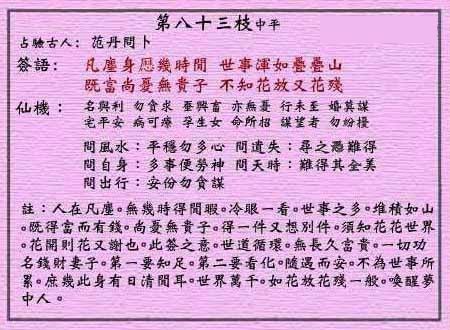 第八十三枝中平
占驗古人：范丹問卜
簽語：凡塵身歷幾時閒 世事渾如疊疊山
既富尚憂無貴子 不知花放又花殘
仙機：名與利 勿貪求 蚕興畜 亦無憂 行未至 婚莫謀
宅平安 病可療 孕生女 命所招 謀望者 勿紛擾
問風水：平穩勿多心 問遺失：尋之憑難得
問自身：多事便勞神 問天時：難得其全美
問出行：安份勿貪謀
註：人在凡塵。無幾時得閒暇。冷眼一看。世事之多。堆積如山
。既得富而有錢。尚憂無貴子。得一件又想別件。須知花花世界
。花開則花又謝也。此簽之意。世道循環。無長久富貴。一切功
名錢財妻子。第一要知足。第二要看化。隨遇而安。不為世事所
累。庶幾此身有日清閒耳。世界萬千。如花放花殘一般。喚醒夢
中人。